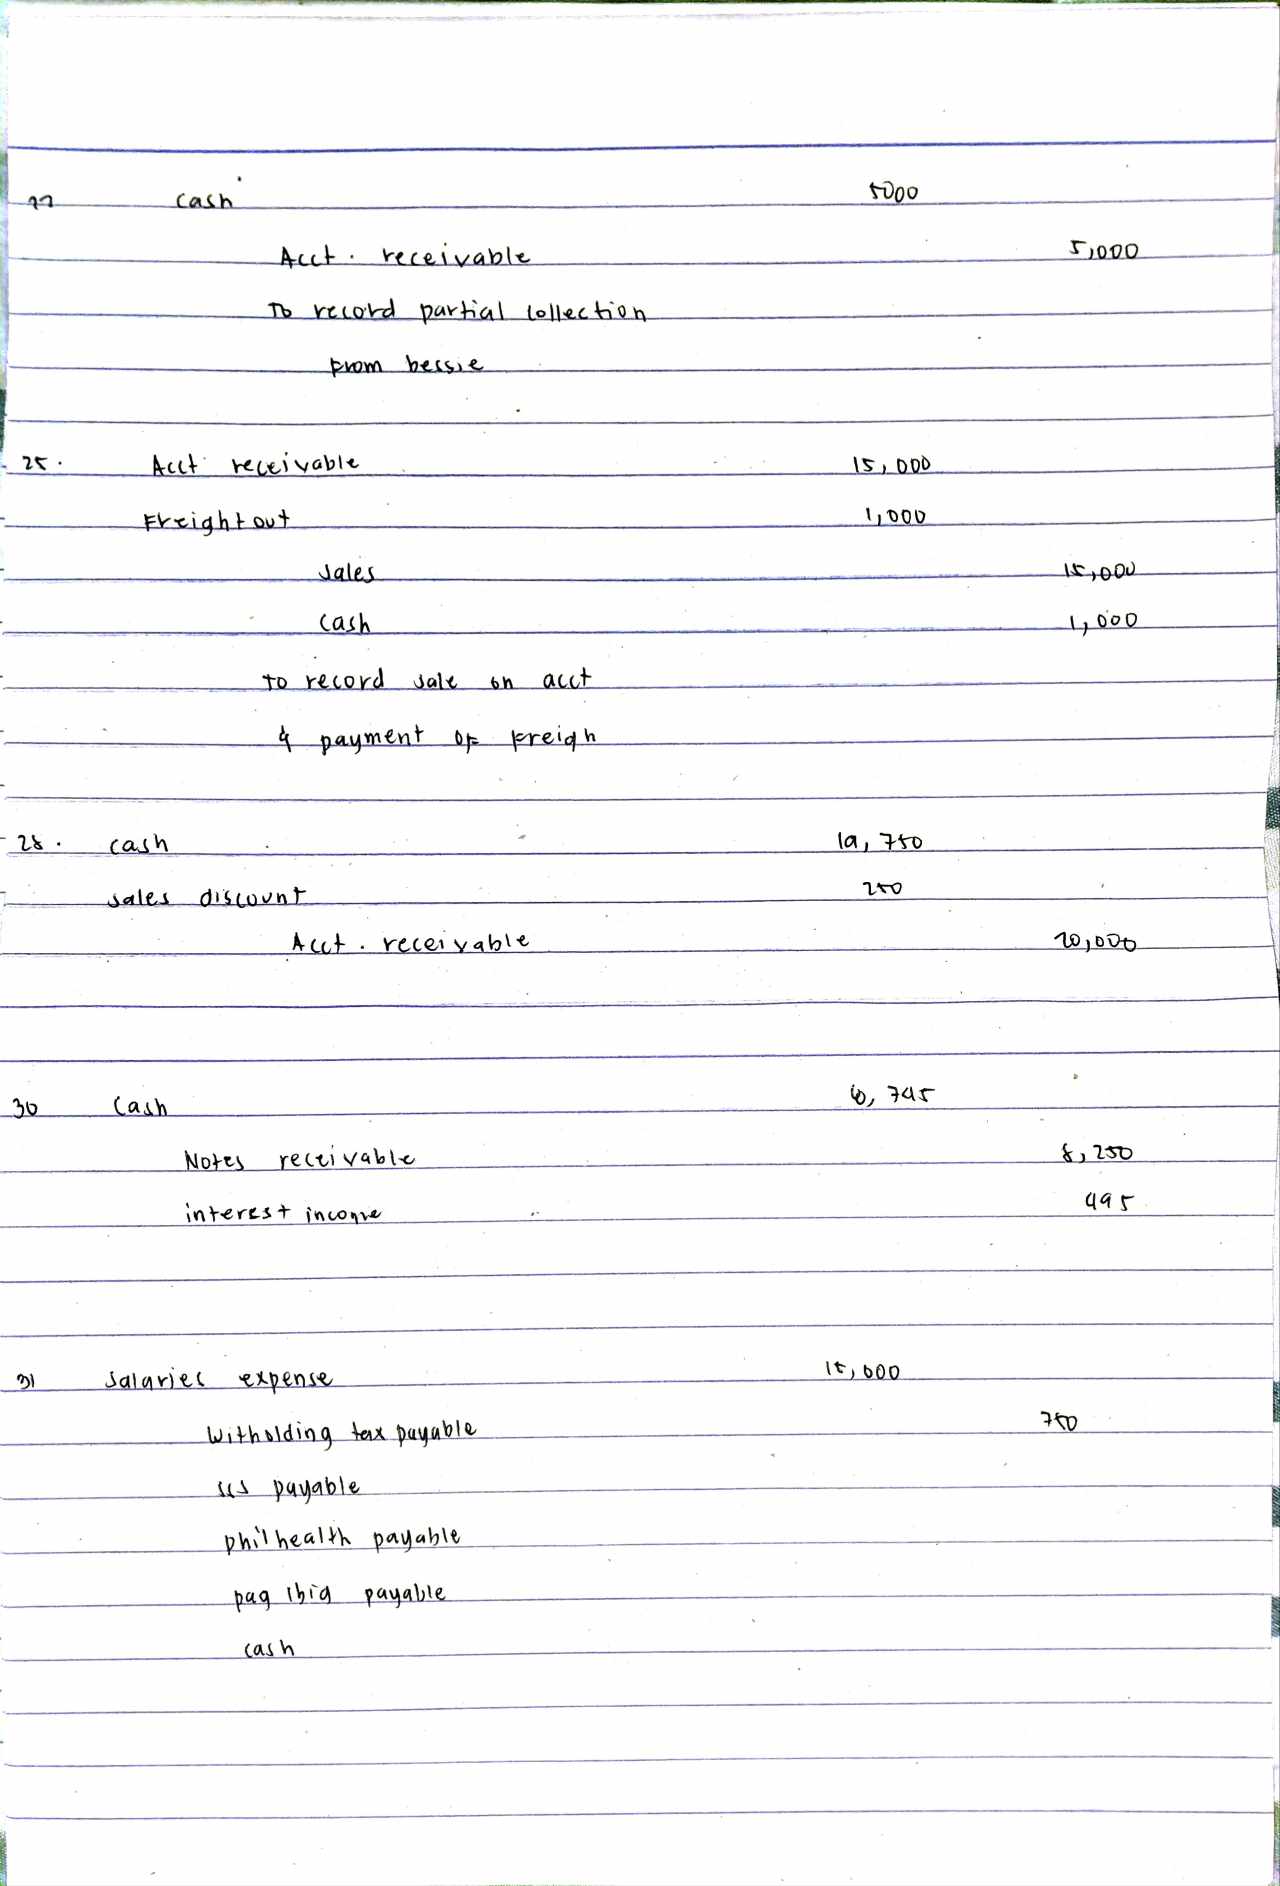 22 cash 5000
Acct. receivable 5,000
To record partial collection
from bessie
25. Acct receivable 15,000
Freight out 1,000
sales 15,000
cash 1,000
to record sale on acct
& payment of freigh
28. cash 19,750
sales discount 250
Acct. receivable 20,000
30 Cash 745
Notes receivable 8,250
interest income 495
31 salaries expense 15,000
Witholding tax payable 750
sss payable
philhealth payable
pag ibig payable
cash